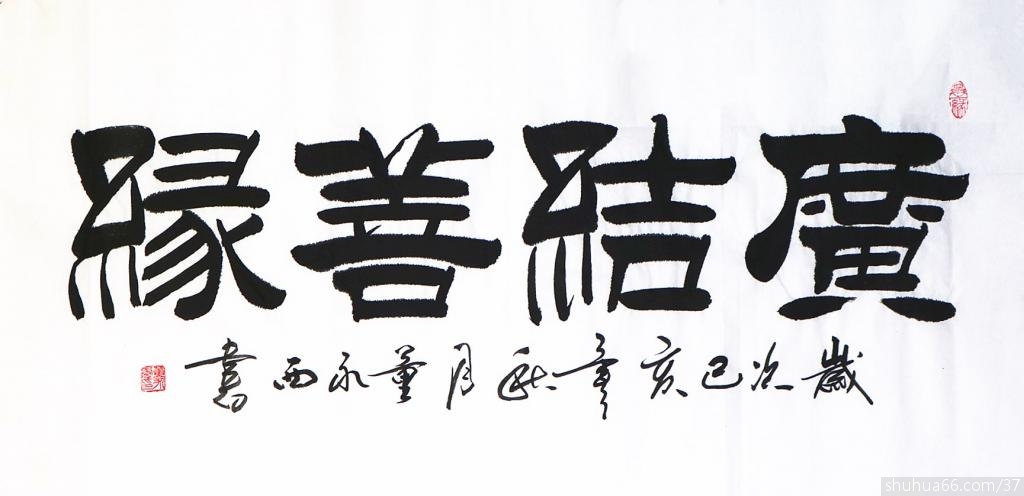 廣結善緣
歲次己亥年秋月董永西書
shuhua66.com/37